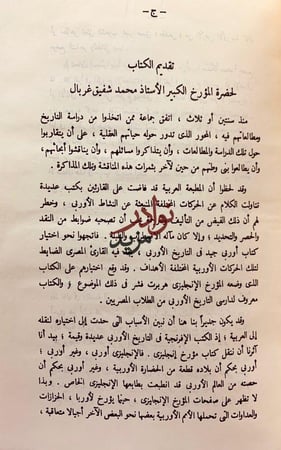 — ج —
تقديم الكتاب
لحضرة المؤرخ الكبير الأستاذ محمد شفيق غربال
منذ سنتين أو ثلاث ، اتفق جماعة ممن اتخذوا من دراسة التاريخ
ومطالعاتهم فيه ، المحور الذى تدور حوله حياتهم العقلية ، على أن يتقاربوا
حول تلك الدراسة والمطالعات ، وأن يتذاكروا مسائلهم ، وأن يناقشوا أبحاثهم،
وأن يطالعوا بنى وطنهم من حين لآخر بثمرات هذه المناقشة وتلك المذاكرة .
وقد لحظوا أن المطبعة العربية قد فاضت على القارئين بكتب عديدة
تتناول الكلام عن الحركات المختلفة المنبعثة عن النشاط الأوربى ، وخطر
لهم أن ذلك الفيض من التأليف أن تصحبه ضوابط من النقد
والحصر والتحديد ، وإلا كان مآله فاتجهوا نحو اختيار
كتاب أوربى جيد فى التاريخ الأوربى القارئ المصرى الضابط
لتلك الحركات الأوربية المختلفة الأهداف . وقد وقع اختيارهم على الكتاب
الذى وضعه المؤرخ الإنجليزى هربرت فشر فى ذلك الموضوع ؛ والكتاب
معروف لدارسى التاريخ الأوربى من الطلاب المصريين .
وقد يكون جديراً بنا هنا أن نبين الأسباب التى حدت إلى اختياره لنقله
إلى العربية ؛ إذ الكتب الإفرنجية فى التاريخ الأوربى عديدة وقيمة ؛ بيد أنا
آثرنا أن ننقل كتاب مؤرخ إنجليزى . فالإنجليزى أوربى ، وغير أوربى ؛
أوربى بحكم أن بلاده قطعة من الحضارة الأوربية ، وغير أوربى بحكم أن
حصته من العالم الأوربى قد انطبعت بطابعها الإنجليزى الخاص . وبذا
لا تظهر على صفحات المؤرخ الإنجليزى ، حينما يؤرخ لأوربا ، الحزازات
والعداوات التى تحملها الأمم الأوربية بعضها نحو البعض الآخر أجيالا متعاقبة ،